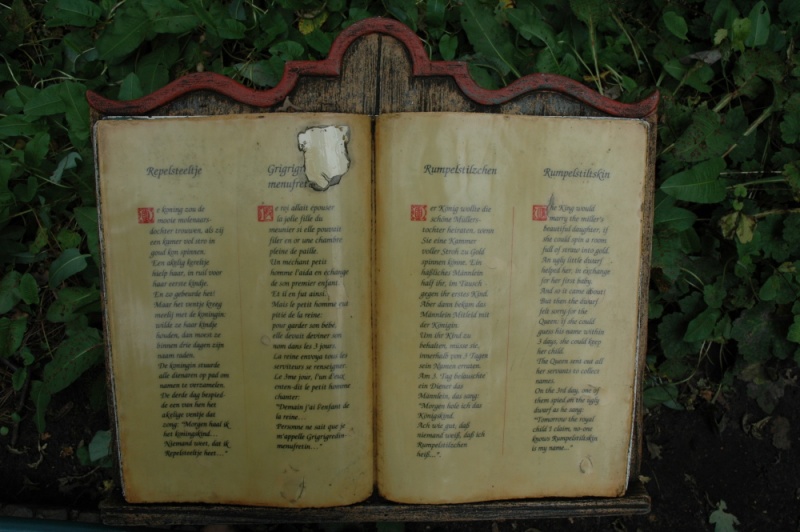 Repelsteeltje
De koning zou de
mooie molenaars-
dochter trouwen, als zij
een kamer vol stro in
goud kon spinnen.
Een akelig kereltje
hielp haar, in ruil voor
haar eerste kindje.
En zo gebeurde het!
Maar het ventje kreeg
meelij met de koningin:
wilde ze haar kindje
houden, dan moest ze
binnen drie dagen zijn
naam raden.
De koningin stuurde
alle dienaren op pad om
namen te verzamelen.
De derde dag bespied-
de een van hen het
akelige ventje dat
zong: "Morgen haal ik
het koningskind...
Niemand weet, dat ik
Repelsteeltje heet..."
Grigrigr
menufret
Le roi allait épouser
la jolie fille du
meunier si elle pouvait
filer en or une chambre
pleine de paille.
Un méchant petit
homme l'aida en échange
de son premier enfant.
Et il en fut ainsi.
Mais le petit homme eut
pitié de la reine.
pour garder son bébé,
elle devait deviner son
nom dans les 3 jours.
La reine envoya tous les
serviteurs se renseigner.
Le 3me jour, l'un d'eux
enten dit le petit homme
chanter:
"Demain j'ai l'enfant de
la reine...
Personne ne sait que je
m'appelle Grigrigredin-
menufretin..."
Rumpelstilzchen
Der König wollte die
schöne Müllers-
tochter heiraten, wenn
Sie eine Kammer
voller Stroh zu Gold
spinnen könne. Ein
häßliches Männlein
half ihr, im Tausch
gegen ihr erstes Kind.
Aber dann bekam das
Männlein Mitleid mit
der Königin.
Um ihr Kind zu
behalten, müsse sie,
innerhalb von 3 Tagen
sein Namen erraten.
Am 3. Tag belauschte
ein Diener das
Männlein, das sang:
"Morgen hole ich das
Königskind.
Ach wie gut, daß
niemand weiß, daß ich
Rumpelstilzchen
heiß...".
Rumpelstiltskin
The King would
marry the miller's
beautiful daughter, if
she could spin a room
full of straw into gold.
An ugly little dwarf
helped her, in exchange
for her first baby.
And so it came about!
But then the dwarf
felt sorry for the
Queen: if she could
guess his name within
3 days, she could keep
her child.
The Queen sent out all
her servants to collect
names.
On the 3rd day, one of
them spied on the ugly
dwarf as he sang:
"Tomorrow the royal
child I claim, no-one
knows Rumpelstiltskin
is my name..."